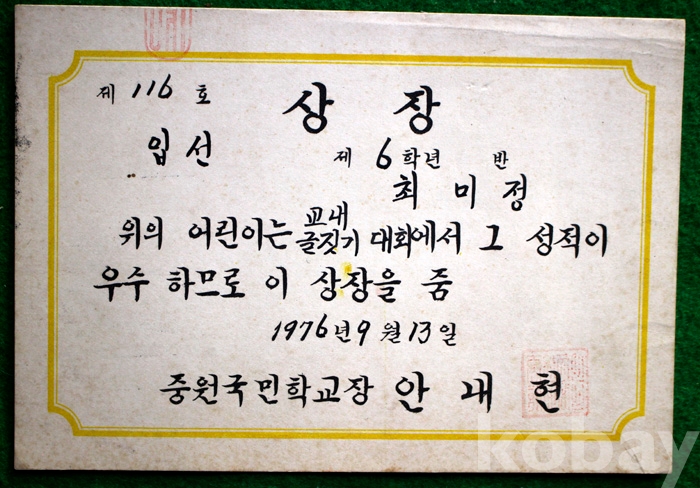 제 116 호
상 장
입선
제 6학년 반
최 미 정
위의 어린이는 교내 글짓기 대회에서 그 성적이
우수 하므로 이 상장을 줌
1976년 9월 13일
중원국민학교장 안 내 현
kobay